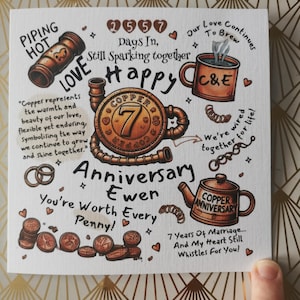 PIPING
HOT
LOVE
2557
Days In,
Still Sparking together
Our Love Continues
To Brew
C&E
Happy
COPPER
7
"Copper represents
the warmth and
beauty of our love,
flexible yet enduring,
Symbolising the way
we continue to grow
and shine together."
We're wired
together for life!
Anniversary
Ewen
You're Worth Every
Penny!
COPPER
ANNIVERSARY
7 Years Of Marriage...
And My Heart Still
Whistles For You!